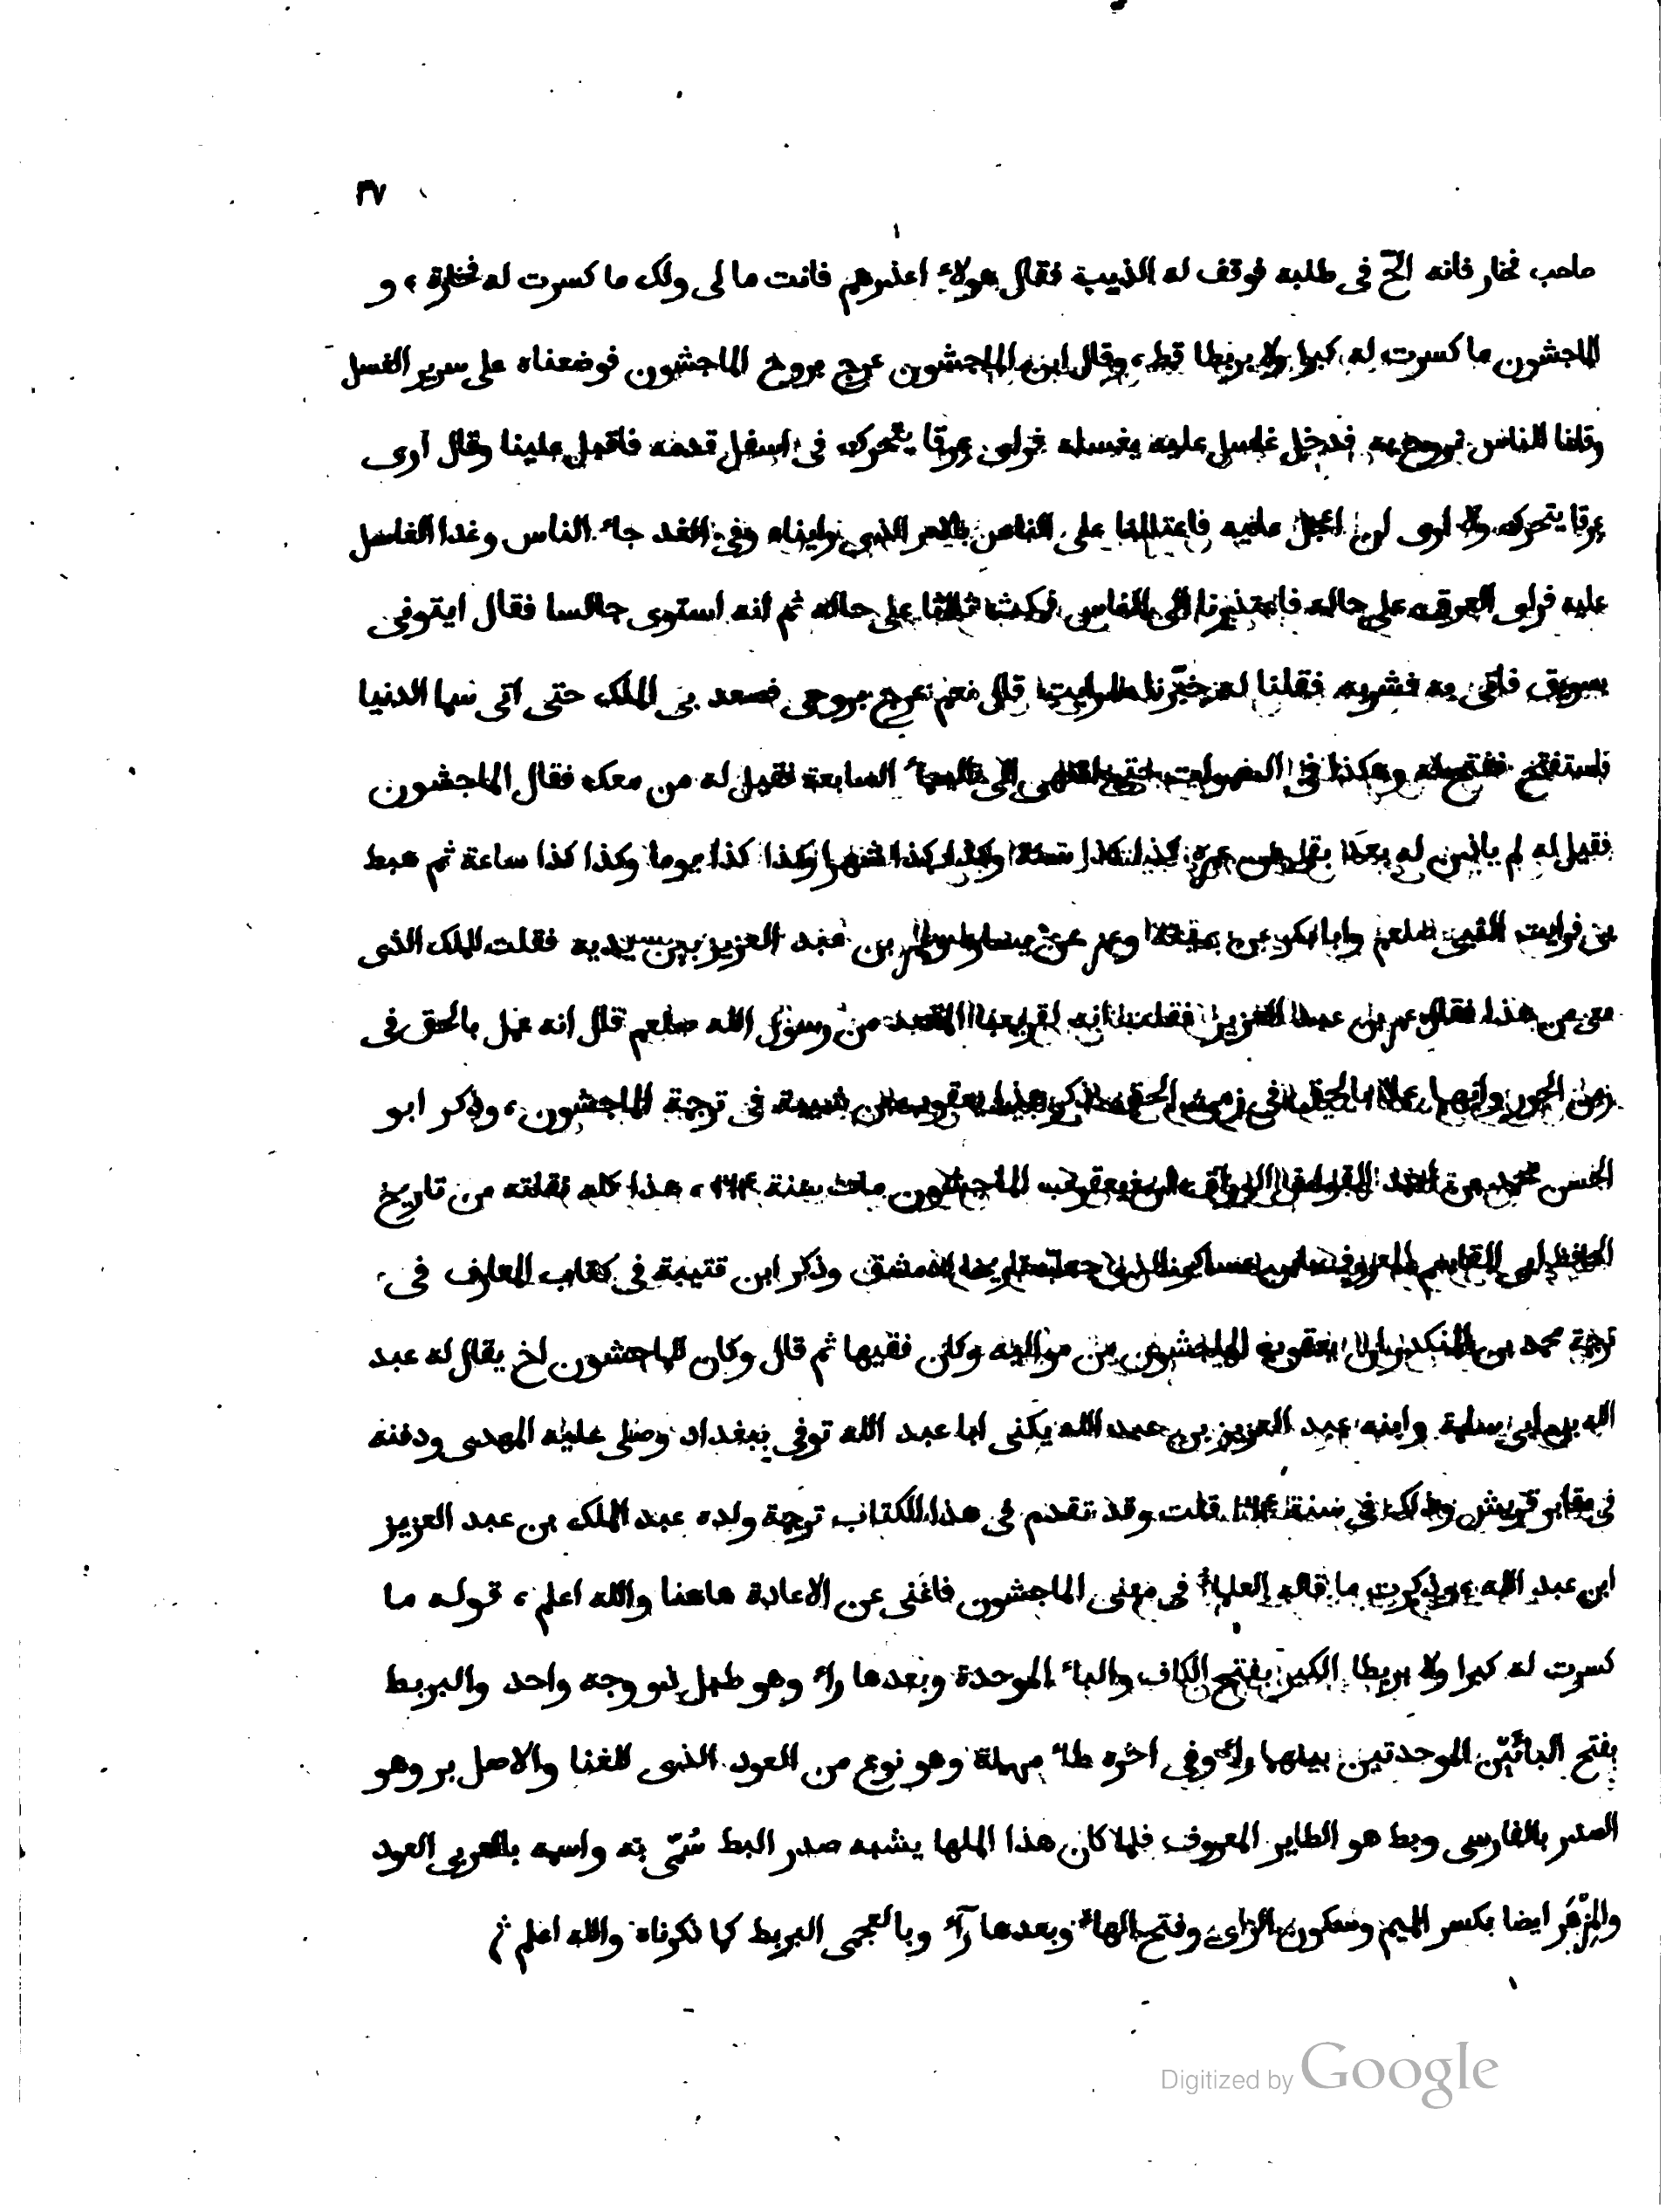 ٣٧
صاحب فخار فانه الحّ فى طلبه فوقف له الذيب فقال هولاء اعذرهم فانت ما لى ولك ما كسرت لك فخارة ، و
الماجشون ما كسرت له كبرا ولا بربطا قط ، وقال ابن الماجشون عرج بروح الماجشون فوضعناه على سرير الغسل
وقلنا للناس نروح به فدخل غاسل عليه يغسله فراى عرقا يتحرك فى اسفل قدمه فاقبل علينا وقال ارى
عرقا يتحرك ولا ارى ان اعجل عليه فاعتللنا على الناس بالامر الذى رايناه وفى الغد جاء الناس وغدا الغاسل
عليه فراى العرق على حاله فاعتذرنا الى الناس فمكث ثلاثا على حاله ثم انه استوى جالسا فقال ايتونى
بسويق فاتى به فشربه فقلنا له خبّرنا ما رايت قال نعم عرج بروحى فصعد بى الملك حتى اتى سما الدنيا
فاستفتح ففتح له وهكذا فى السموات حتى انتهى الى السماء السابعة فقيل له من معك فقال الماجشون
فقيل له لم يان له بعد بقى من عمره كذا كذا سنة وكذا كذا شهرا وكذا كذا يوما وكذا كذا ساعة ثم هبط
بى فرايت النبى صلعم وابا بكر عن يمينه وعمر عن يساره وعمر بن عبد العزيز بين يديه فقلت للملك الذى
معى من هذا فقال عمر بن عبد العزيز فقلت انه لقريب المقعد من رسول الله صلعم قال انه عمل بالحق فى
زمن الجور وانهما عملا بالحق فى زمن الحق ذكر هذا يعقوب بن شيبة فى ترجمة الماجشون ، وذكر ابو
الحسن محمد بن القواس الوراق ان يعقوب الماجشون مات سنة ١٦٤ ، هذا كله نقلته من تاريخ
الحافظ ابى القاسم المعروف بابن عساكر الذى جعله تاريخا لدمشق وذكر ابن قتيبة فى كتاب المعارف فى
ترجمة محمد بن المنكدر ان يعقوب الماجشون من مواليه وكان فقيها ثم قال وكان للماجشون اخ يقال له عبد
الله بن ابى سلمة وابنه عبد العزيز بن عبد الله يكنى ابا عبد الله توفى ببغداد وصلى عليه المهدى ودفنه
فى مقابر قريش وذلك فى سنة ١٦٤ قلت وقد تقدم فى هذا الكتاب ترجمة ولده عبد الملك بن عبد العزيز
ابن عبد الله ، وذكرت ما قاله العلماء فى معنى الماجشون فاغنى عن الاعادة هاهنا والله اعلم ، قوله ما
كسرت له كبرا ولا بربطا الكبر بفتح الكاف والباء الموحدة وبعدها راء وهو طبل ذو وجه واحد والبربط
بفتح البائين الموحدتين بينهما راء وفى اخره طاء مهملة وهو نوع من العود الذى للغنا والاصل بر وهو
الصدر بالفارسى وبط هو الطاير المعروف فلما كان هذا الملها يشبه صدر البط سُمّى به واسمه بالعربى العود
والمِزْهَر ايضا بكسر الميم وسكون الزاى وفتح الهاء وبعدها رآء وبالعجمى البربط كما ذكرناه والله اعلم
Digitized by Google